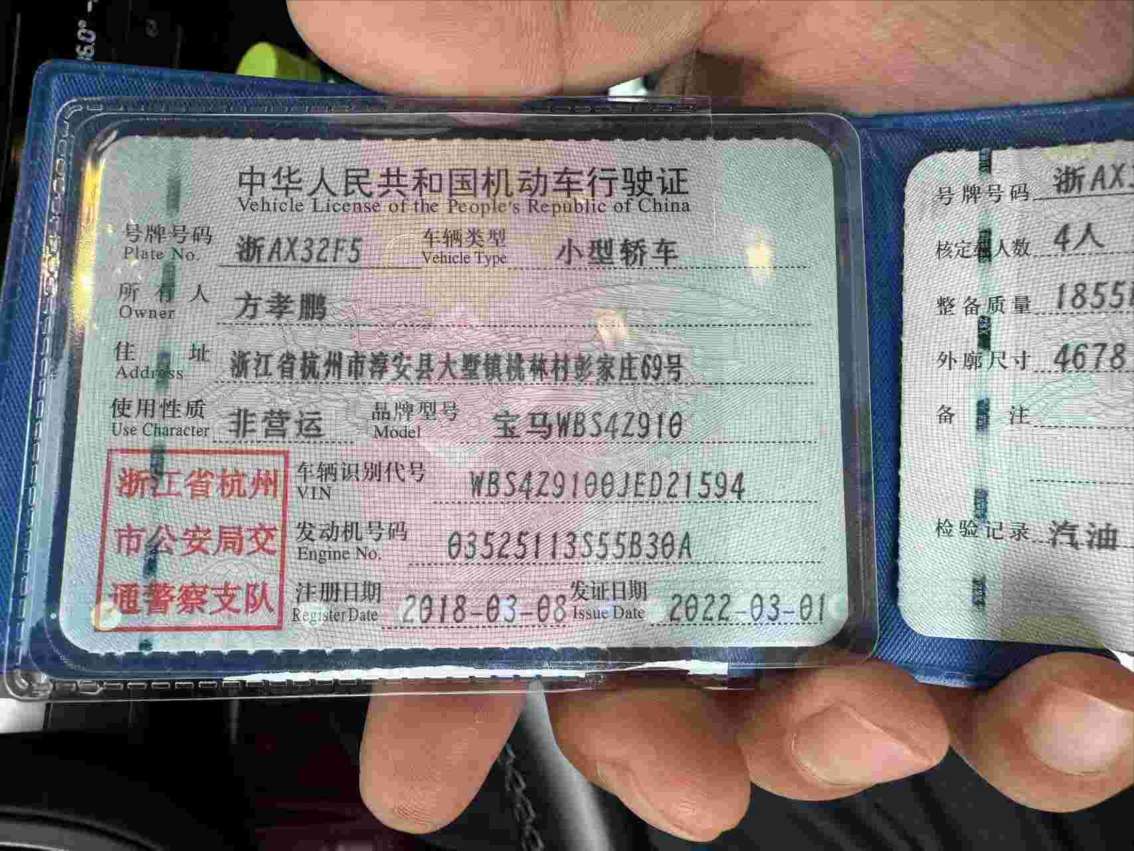 中华人民共和国机动车行驶证
Vehicle License of the People's Republic of China
号牌号码 浙AX32F5 车辆类型 小型轿车
Plate No. Vehicle Type
所有人 方孝鹏
Owner
住址 浙江省杭州市淳安县大墅镇桃林村彭家庄69号
Address
使用性质 非营运 品牌型号 宝马WBS4Z910
Use Character Model
浙江省杭州
市公安局交
通警察支队
车辆识别代号 WBS4Z9100JED21594
VIN
发动机号码 03525113S55B30A
Engine No.
注册日期 2018-03-08 发证日期 2022-03-01
Register Date Issue Date
号牌号码 浙AX3
核定载人数 4人
整备质量 1855
外廓尺寸 4678
备注
检验记录 汽油